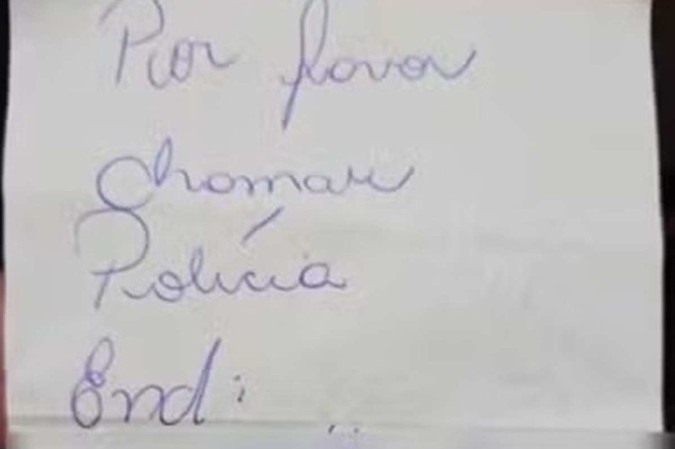 Por favor
chamar
Polícia
End: